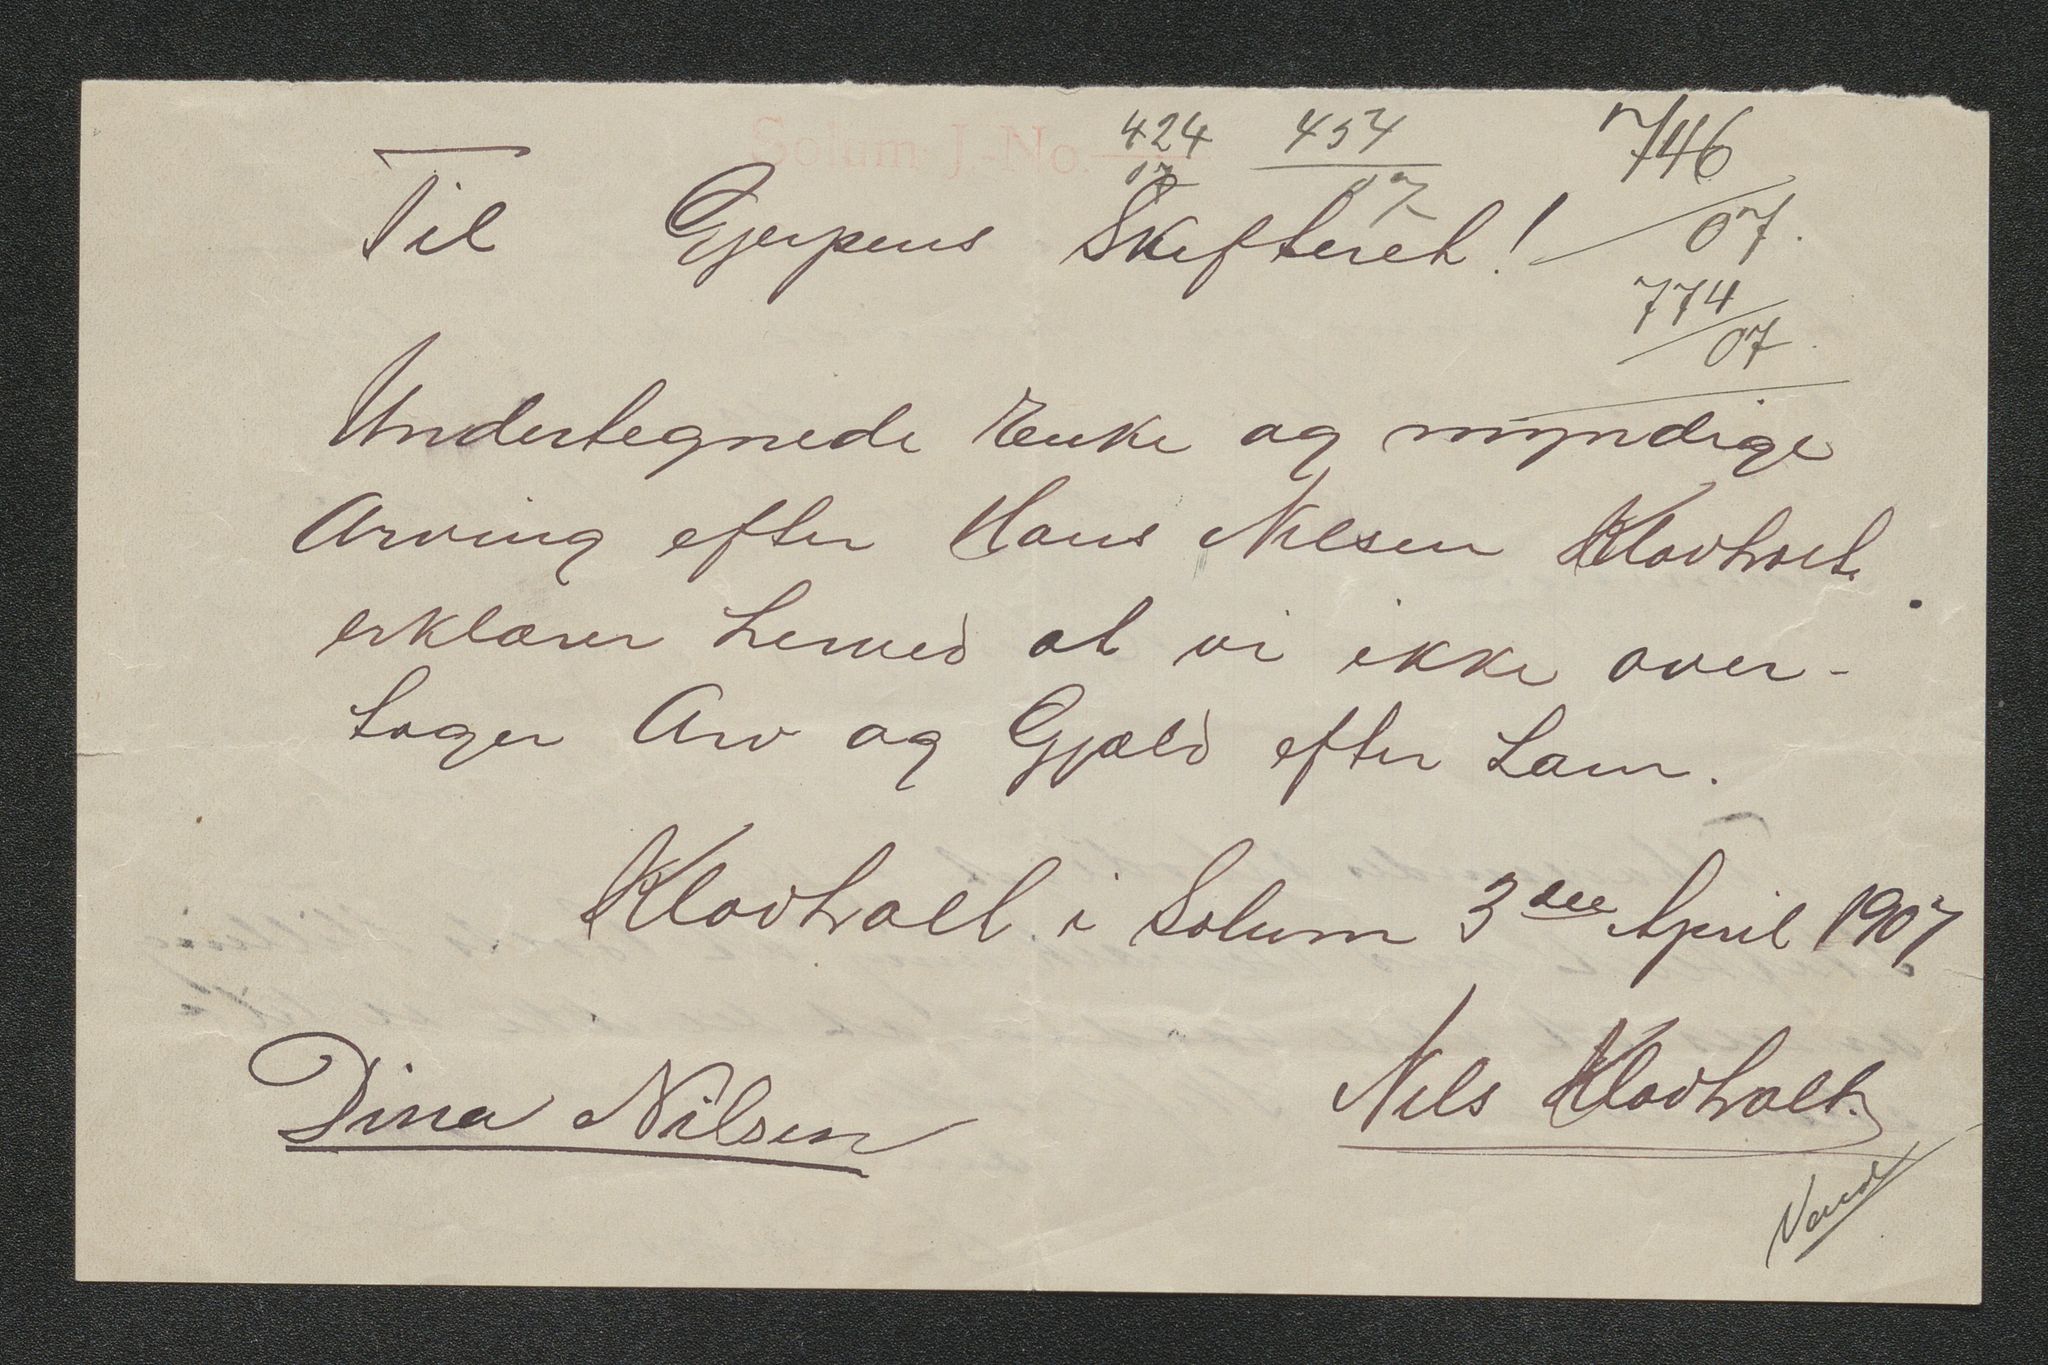 Solum J.-No. 424/07 454/07 746/07.
Til Gjerpens Skifteret!
774/07.
Undertegnede Enke og myndige
Arving efter Hans Nilsen Klovholt
erklærer herved at vi ikke over-
tager Arv og Gjæld efter ham.
Klovholt i Solum 3die April 1907
Dina Nilsen Nils Klovholt.
Vend